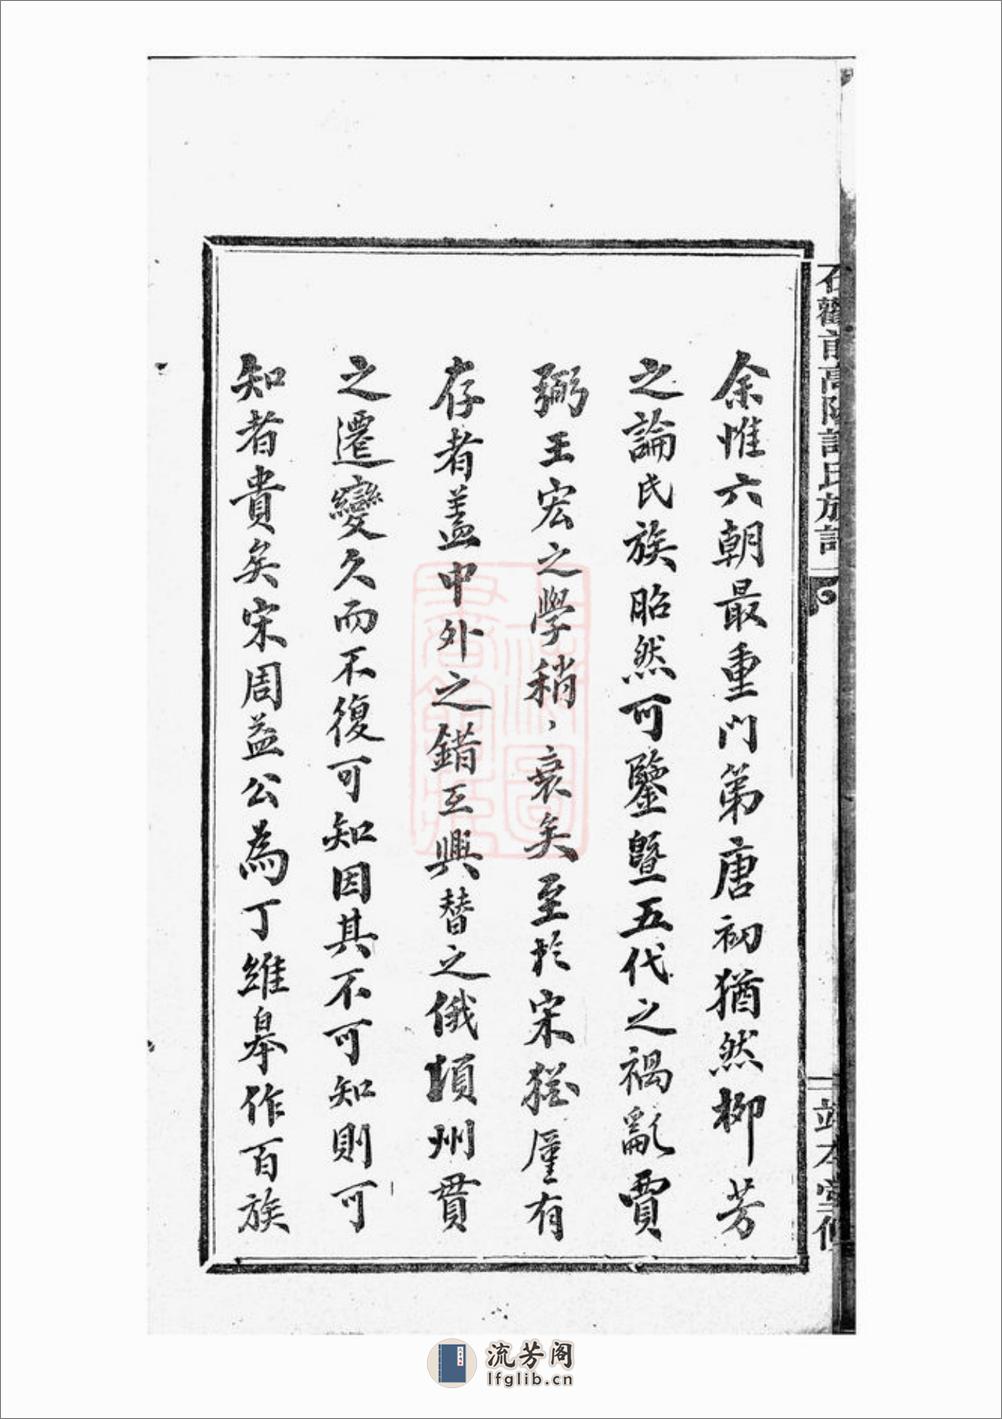 余惟六朝最重門第唐初猶然柳芳
之論氏族昭然可鑒暨五代之禍亂賈
弼王宏之學稍、衰矣至於宋猶厪有
存者蓋中外之錯互興替之俄頃州貫
之遷變久而不復可知因其不可知則可
知者貴矣宋周益公為丁維皋作百族
高陽許氏族譜
本堂
流芳阁
lfglib.cn